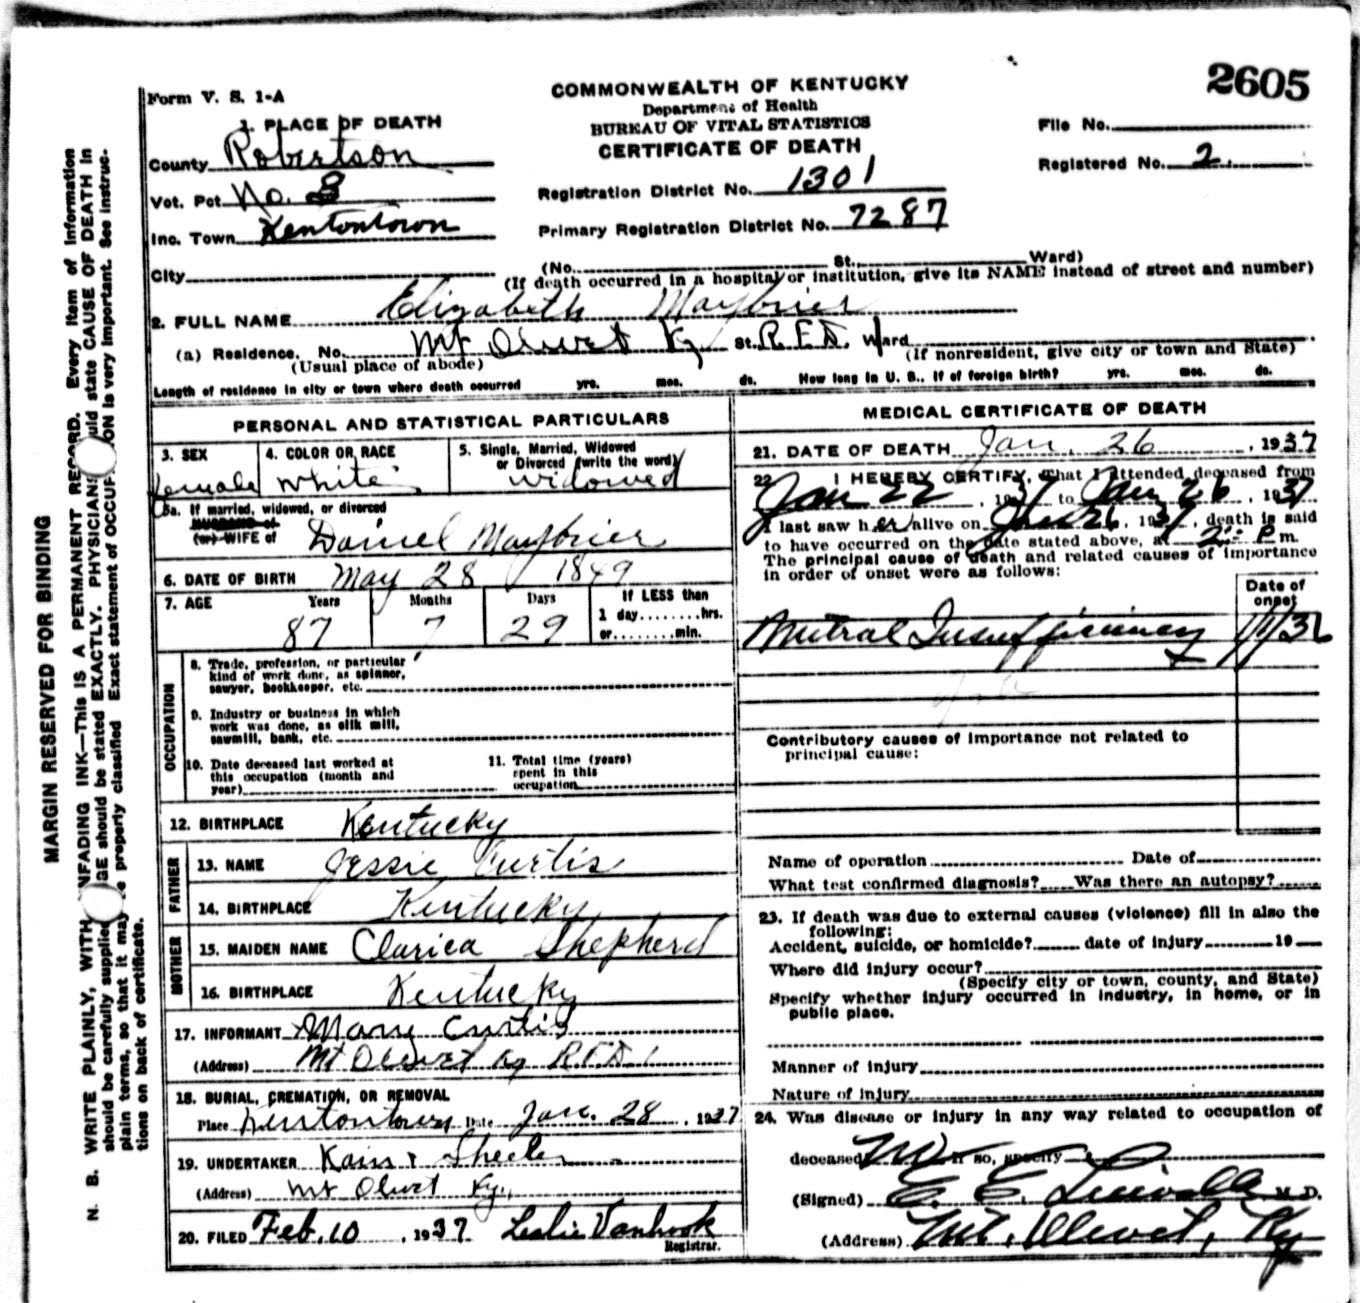 2605
Form V. S. 1-A
COMMONWEALTH OF KENTUCKY
Department of Health
BUREAU OF VITAL STATISTICS
CERTIFICATE OF DEATH
1. PLACE OF DEATH
County Robertson
Vot. Pct No. 3
Inc. Town Kentontown
City
File No.
Registered No. 2.
Registration District No. 1301
Primary Registration District No. 7287
(No. St. Ward)
(If death occurred in a hospital or institution, give its NAME instead of street and number)
2. FULL NAME Elizabeth Maybrier
(a) Residence. No. Mt Olivet Ky St. R.F.D. Ward
(Usual place of abode) (If nonresident, give city or town and State)
Length of residence in city or town where death occurred yrs. mos. ds. How long in U. S., if of foreign birth? yrs. mos. ds.
PERSONAL AND STATISTICAL PARTICULARS
3. SEX
female
4. COLOR OR RACE
White
5. Single, Married, Widowed
or Divorced (write the word)
Widowed
5a. If married, widowed, or divorced
HUSBAND of
(or) WIFE of Daniel Maybrier
6. DATE OF BIRTH May 28 1849
7. AGE Years Months Days If LESS than
1 day........hrs.
or........min.
87 7 29
OCCUPATION
8. Trade, profession, or particular
kind of work done, as spinner,
sawyer, bookkeeper, etc.
9. Industry or business in which
work was done, as silk mill,
sawmill, bank, etc.
10. Date deceased last worked at
this occupation (month and
year)
11. Total time (years)
spent in this
occupation
12. BIRTHPLACE Kentucky
FATHER
13. NAME Jessie Curtis
14. BIRTHPLACE Kentucky
MOTHER
15. MAIDEN NAME Clarica Shepherd
16. BIRTHPLACE Kentucky
17. INFORMANT Mary Curtis
(Address) Mt Olivet Ky R.F.D 1
18. BURIAL, CREMATION, OR REMOVAL
Place Kentontown Date Jan. 28, 1937
19. UNDERTAKER Kain &
(Address) Mt Olivet Ky.
20. FILED Feb. 10, 1937 Leslie Vanhook
Registrar.
MEDICAL CERTIFICATE OF DEATH
21. DATE OF DEATH Jan. 26, 1937
22. I HEREBY CERTIFY, That I attended deceased from
Jan 22, 1937 to Jan 26, 1937
I last saw her alive on Jan 26, 1937, death is said
to have occurred on the date stated above, at 2:- P m.
The principal cause of death and related causes of importance
in order of onset were as follows:
Date of
onset
Mitral Insufficiency 1/1/36
Contributory causes of importance not related to
principal cause:
Name of operation Date of
What test confirmed diagnosis? Was there an autopsy?
23. If death was due to external causes (violence) fill in also the
following:
Accident, suicide, or homicide? date of injury 19
Where did injury occur?
(Specify city or town, county, and State)
Specify whether injury occurred in industry, in home, or in
public place.
Manner of injury
Nature of injury
24. Was disease or injury in any way related to occupation of
deceased No If so, specify
(Signed) E. E. M. D.
(Address) Mt. Olivet, Ky
MARGIN RESERVED FOR BINDING
N. B. WRITE PLAINLY, WITH UNFADING INK—THIS IS A PERMANENT RECORD. Every item of information
should be carefully supplied. AGE should be stated EXACTLY. PHYSICIANS should state CAUSE OF DEATH in
plain terms, so that it may be properly classified. Exact statement of OCCUPATION is very important. See instruc-
tions on back of certificate.